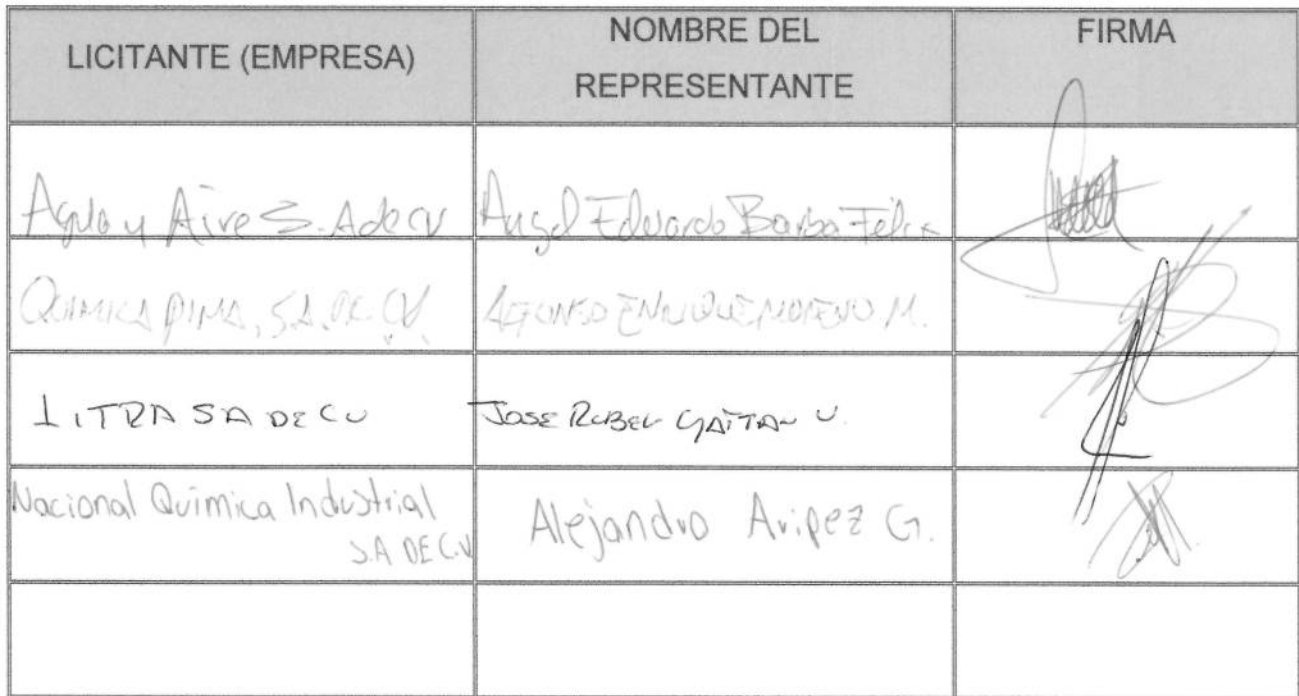 LICITANTE (EMPRESA)
NOMBRE DEL
REPRESENTANTE
FIRMA
Agua y Aire S.A de CV
Angel Eduardo Barba Félix
QUIMICA PIMA, S.A. DE. CV.
ALFONSO ENRIQUE MORENO M.
LITRA SA DE CV
JOSE RUBEN GAITAN V.
Nacional Química Industrial
S.A DE C.V
Alejandro Aripez G.